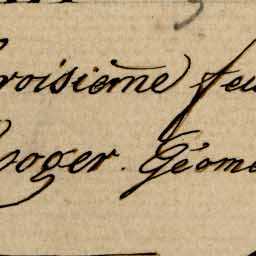 roisième feu
oger. Géomé